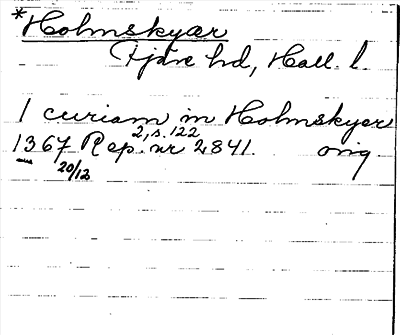 *Holmskyær
Fjäre hd, Hall. l.
1 curiam in Holmskyær
1367 Rep. nr 2841. orig
2, s. 122
20/12